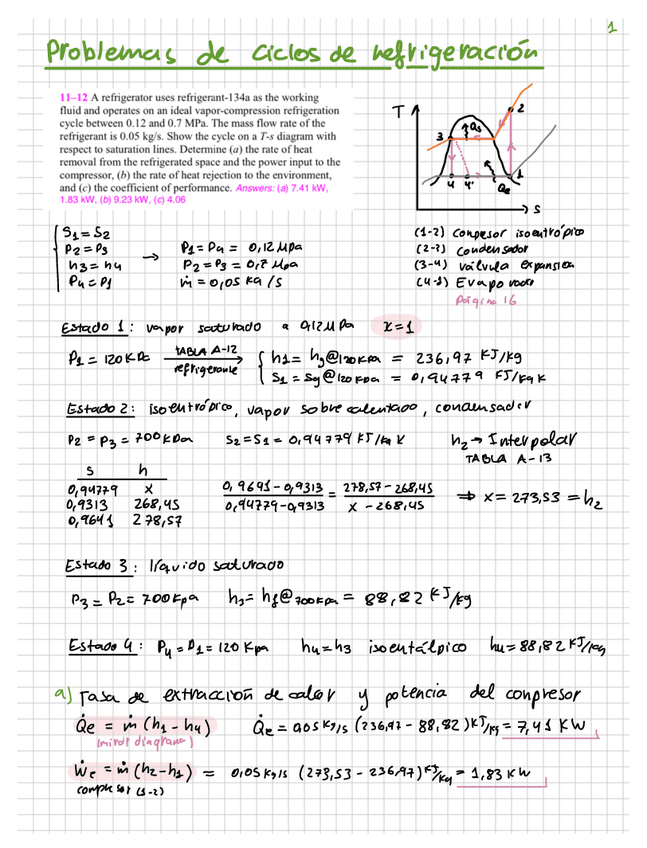 1
Problemas de ciclos de refrigeración
11–12 A refrigerator uses refrigerant-134a as the working
fluid and operates on an ideal vapor-compression refrigeration
cycle between 0.12 and 0.7 MPa. The mass flow rate of the
refrigerant is 0.05 kg/s. Show the cycle on a T-s diagram with
respect to saturation lines. Determine (a) the rate of heat
removal from the refrigerated space and the power input to the
compressor, (b) the rate of heat rejection to the environment,
and (c) the coefficient of performance. Answers: (a) 7.41 kW,
1.83 kW, (b) 9.23 kW, (c) 4.06
T
2
3
Qs
4
4'
Qe
1
S
S1 = S2
P2 = P3
h3 = h4
P4 = P1
→ P1 = P4 = 0,12 MPa
P2 = P3 = 0,7 MPa
ṁ = 0,05 kg/s
(1-2) compesor isoentrópico
(2-3) condensador
(3-4) válvula expansion
(4-1) Evaporador
Página 16
Estado 1: vapor saturado a 0,12 MPa x=1
P1 = 120 KPa TABLA A-12 refrigerante
h1 = hg@120kpa = 236,97 KJ/kg
S1 = Sg@120kpa = 0,94779 KJ/kg K
Estado 2: isoentrópico, vapor sobrecalentado, condensador
P2 = P3 = 700 KPa S2 = S1 = 0,94779 KJ/kg K h2 → Interpolar
TABLA A-13
s h
0,94779 x
0,9313 268,45
0,9641 278,57
0,9641 - 0,9313 / 0,94779 - 0,9313 = 278,57 - 268,45 / x - 268,45 ⇒ x = 273,53 = h2
Estado 3: líquido saturado
P3 = P2 = 700 Kpa h3 = hf@700kpa = 88,82 KJ/kg
Estado 4: P4 = P1 = 120 Kpa h4 = h3 isoentálpico h4 = 88,82 KJ/kg
a) Tasa de extracción de calor y potencia del conpresor
Q̇e = ṁ (h1 - h4) Q̇e = 0,05 kg/s (236,97 - 88,82) KJ/kg = 7,41 KW
(mirar diagrama)
Ẇc = ṁ (h2 - h1) = 0,05 kg/s (273,53 - 236,97) KJ/kg = 1,83 KW
compresor (1-2)